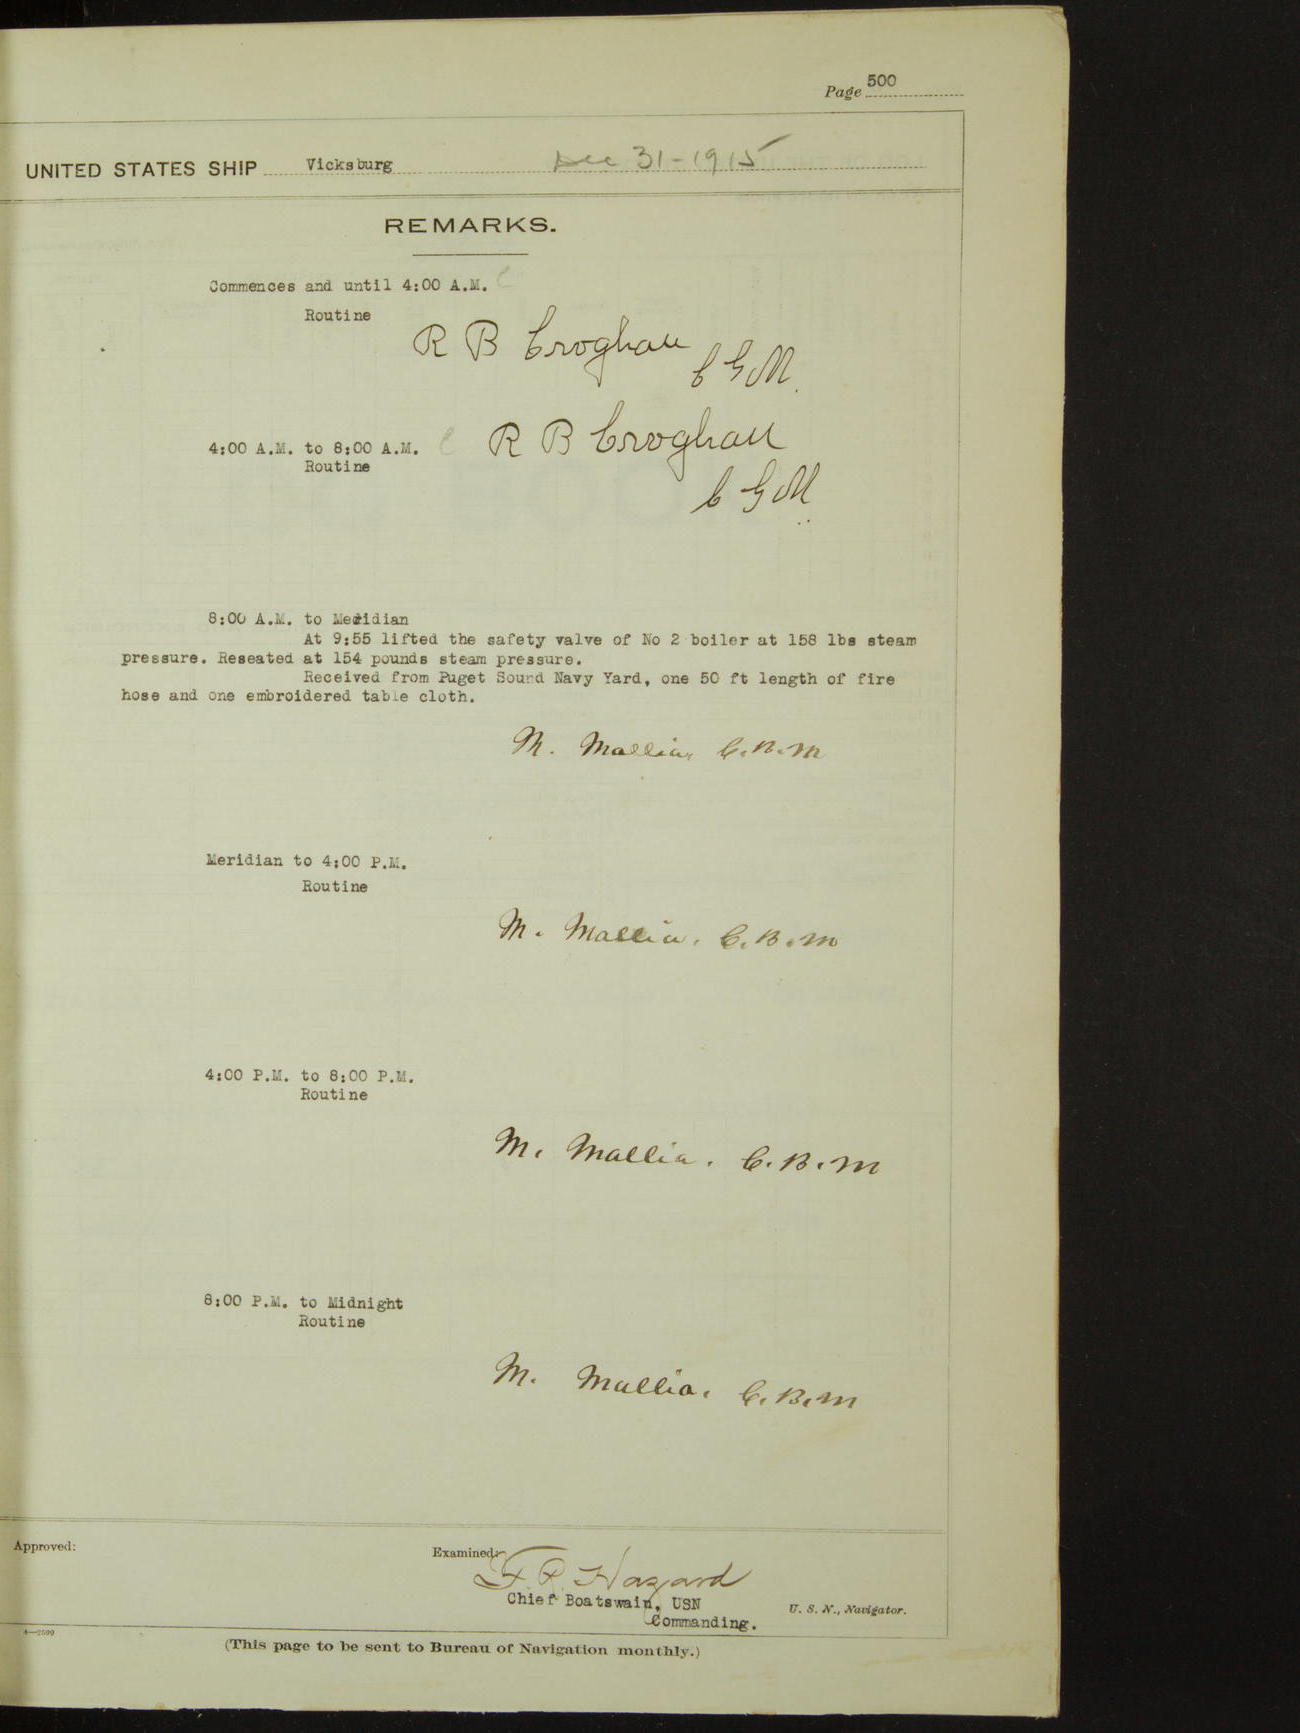 Page 500
UNITED STATES SHIP Vicksburg Dec 31-1915
REMARKS.
Commences and until 4:00 A.M.
Routine
R B Croghan
C G M.
4:00 A.M. to 8:00 A.M.
R B Croghan
Routine
C G M
8:00 A.M. to Meridian
At 9:55 lifted the safety valve of No 2 boiler at 158 lbs steam
pressure. Reseated at 154 pounds steam pressure.
Received from Puget Sound Navy Yard, one 50 ft length of fire
hose and one embroidered table cloth.
M. Mallia, C.B.M
Meridian to 4:00 P.M.
Routine
M. Mallia. C.B.M
4:00 P.M. to 8:00 P.M.
Routine
M. Mallia. C.B.M
8:00 P.M. to Midnight
Routine
M. Mallia. C.B.M
Approved:
Examined:
F. R. Hazard
Chief Boatswain, USN
Commanding.
U. S. N., Navigator.
(This page to be sent to Bureau of Navigation monthly.)